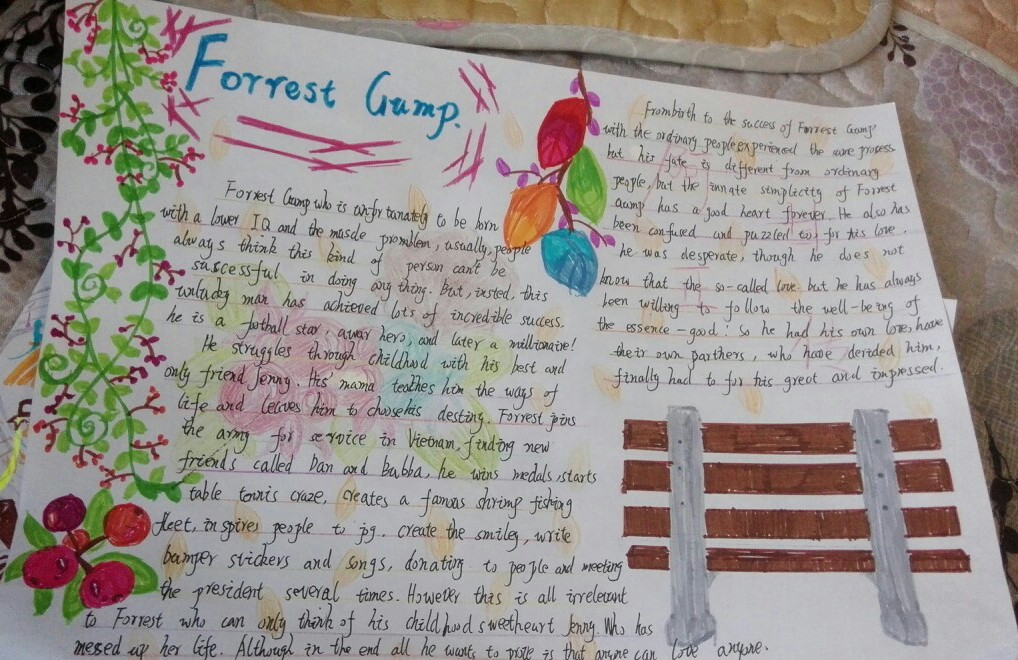 Forrest Gump.
Forrest Gump who is unfortanately to be born
with a lower IQ and the muscle promblem, usually, people
always think this kind of person can't be
successful in doing any thing. But, insted, this
unlucky man has achieved lots of incredible success.
he is a fotball star, awar hero, and later a millionaire!
He struggles through childhood with his best and
only friend Jenny. His' mama teaches him the ways of
life and leaves him to choosehis destiny. Forrest joins
the army for service in Vietnam, finding new
friends called Dan and Bubba, he wins medals, starts
table tennis craze, creates a famous shrimp fishing
fleet, inspires people to jog. create the smiley, write
bumper stickers and songs, donating to people and meeting
the president several times. However this is all irrelevant
to Forrest who can only think of his childhood sweetheart Jenny. Who has
messed up her life. Although in the end all he wants to prove is that anyone can love anyone.
Frombirth to the success of Forrest Gump
with the ordinary people experienced the same process
but his fate is different from ordinary
people, but the innate simplicity of Forrest
Gump has a good heart forever. He also has
been confused and puzzled to for his love.
he was desperate, though he does not
know that the so-called love. but he has always
been willing to follow the well-being of
the essence-good! So he had his own love, have
their own parthers, who have derided him,
finally had to for his great and impressed.